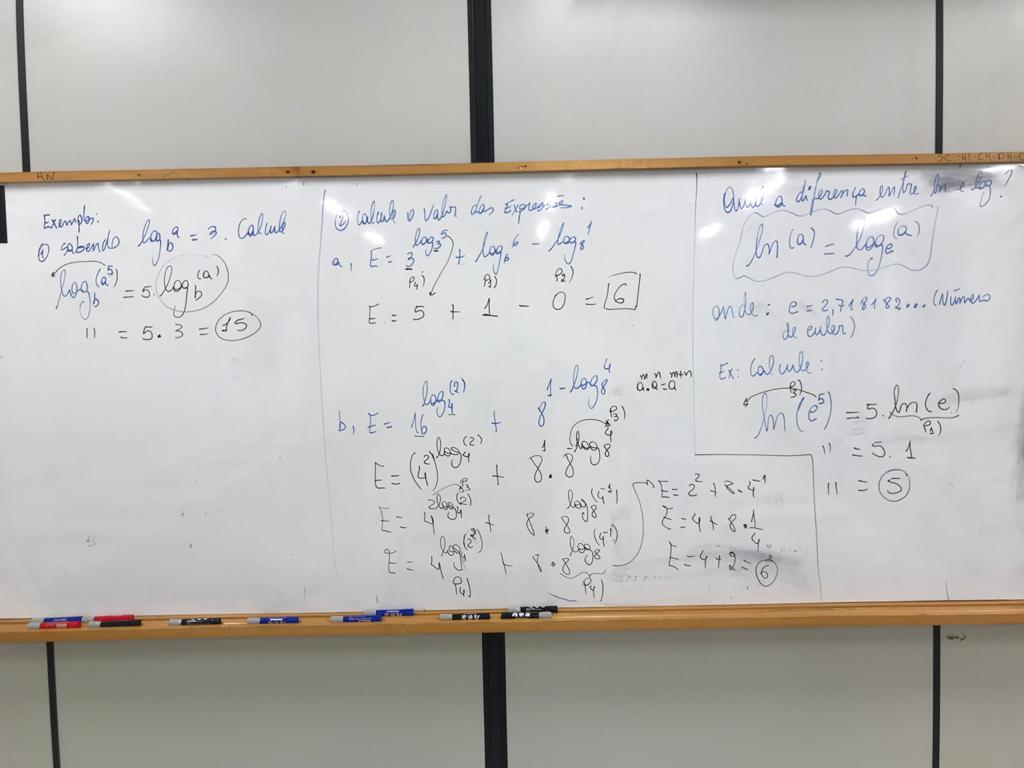 AN
SC-HI-CH-DH-C
Exemplos:
① sabendo log_b a = 3. Calcule
log_b (a⁵) = 5. log_b (a)
" = 5. 3 = 15
② Calcule o Valor das Expressões:
a, E = 3^(log_3 5) + log_6 6 - log_8 1
P4) P1) P2)
E = 5 + 1 - 0 = 6
b, E = 16^(log_4 (2)) + 8^(1 - log_8 4)
a^m . a^n = a^(m+n)
P3)
E = (4²)^(log_4 (2)) + 8¹ . 8^(-log_8 4)
P3
E = 4^(2log_4 (2)) + 8 . 8^(log_8 (4⁻¹))
E = 4^(log_4 (2²)) + 8 . 8^(log_8 (4⁻¹))
P4) P4)
E = 2² + 8 . 4⁻¹
E = 4 + 8 . 1/4
E = 4 + 2 = 6
Qual a diferença entre ln e log?
ln (a) = log_e (a)
onde: e = 2,718182... (Número
de euler)
Ex: Calcule:
P3)
ln (e⁵) = 5. ln (e)
P1)
" = 5. 1
" = 5